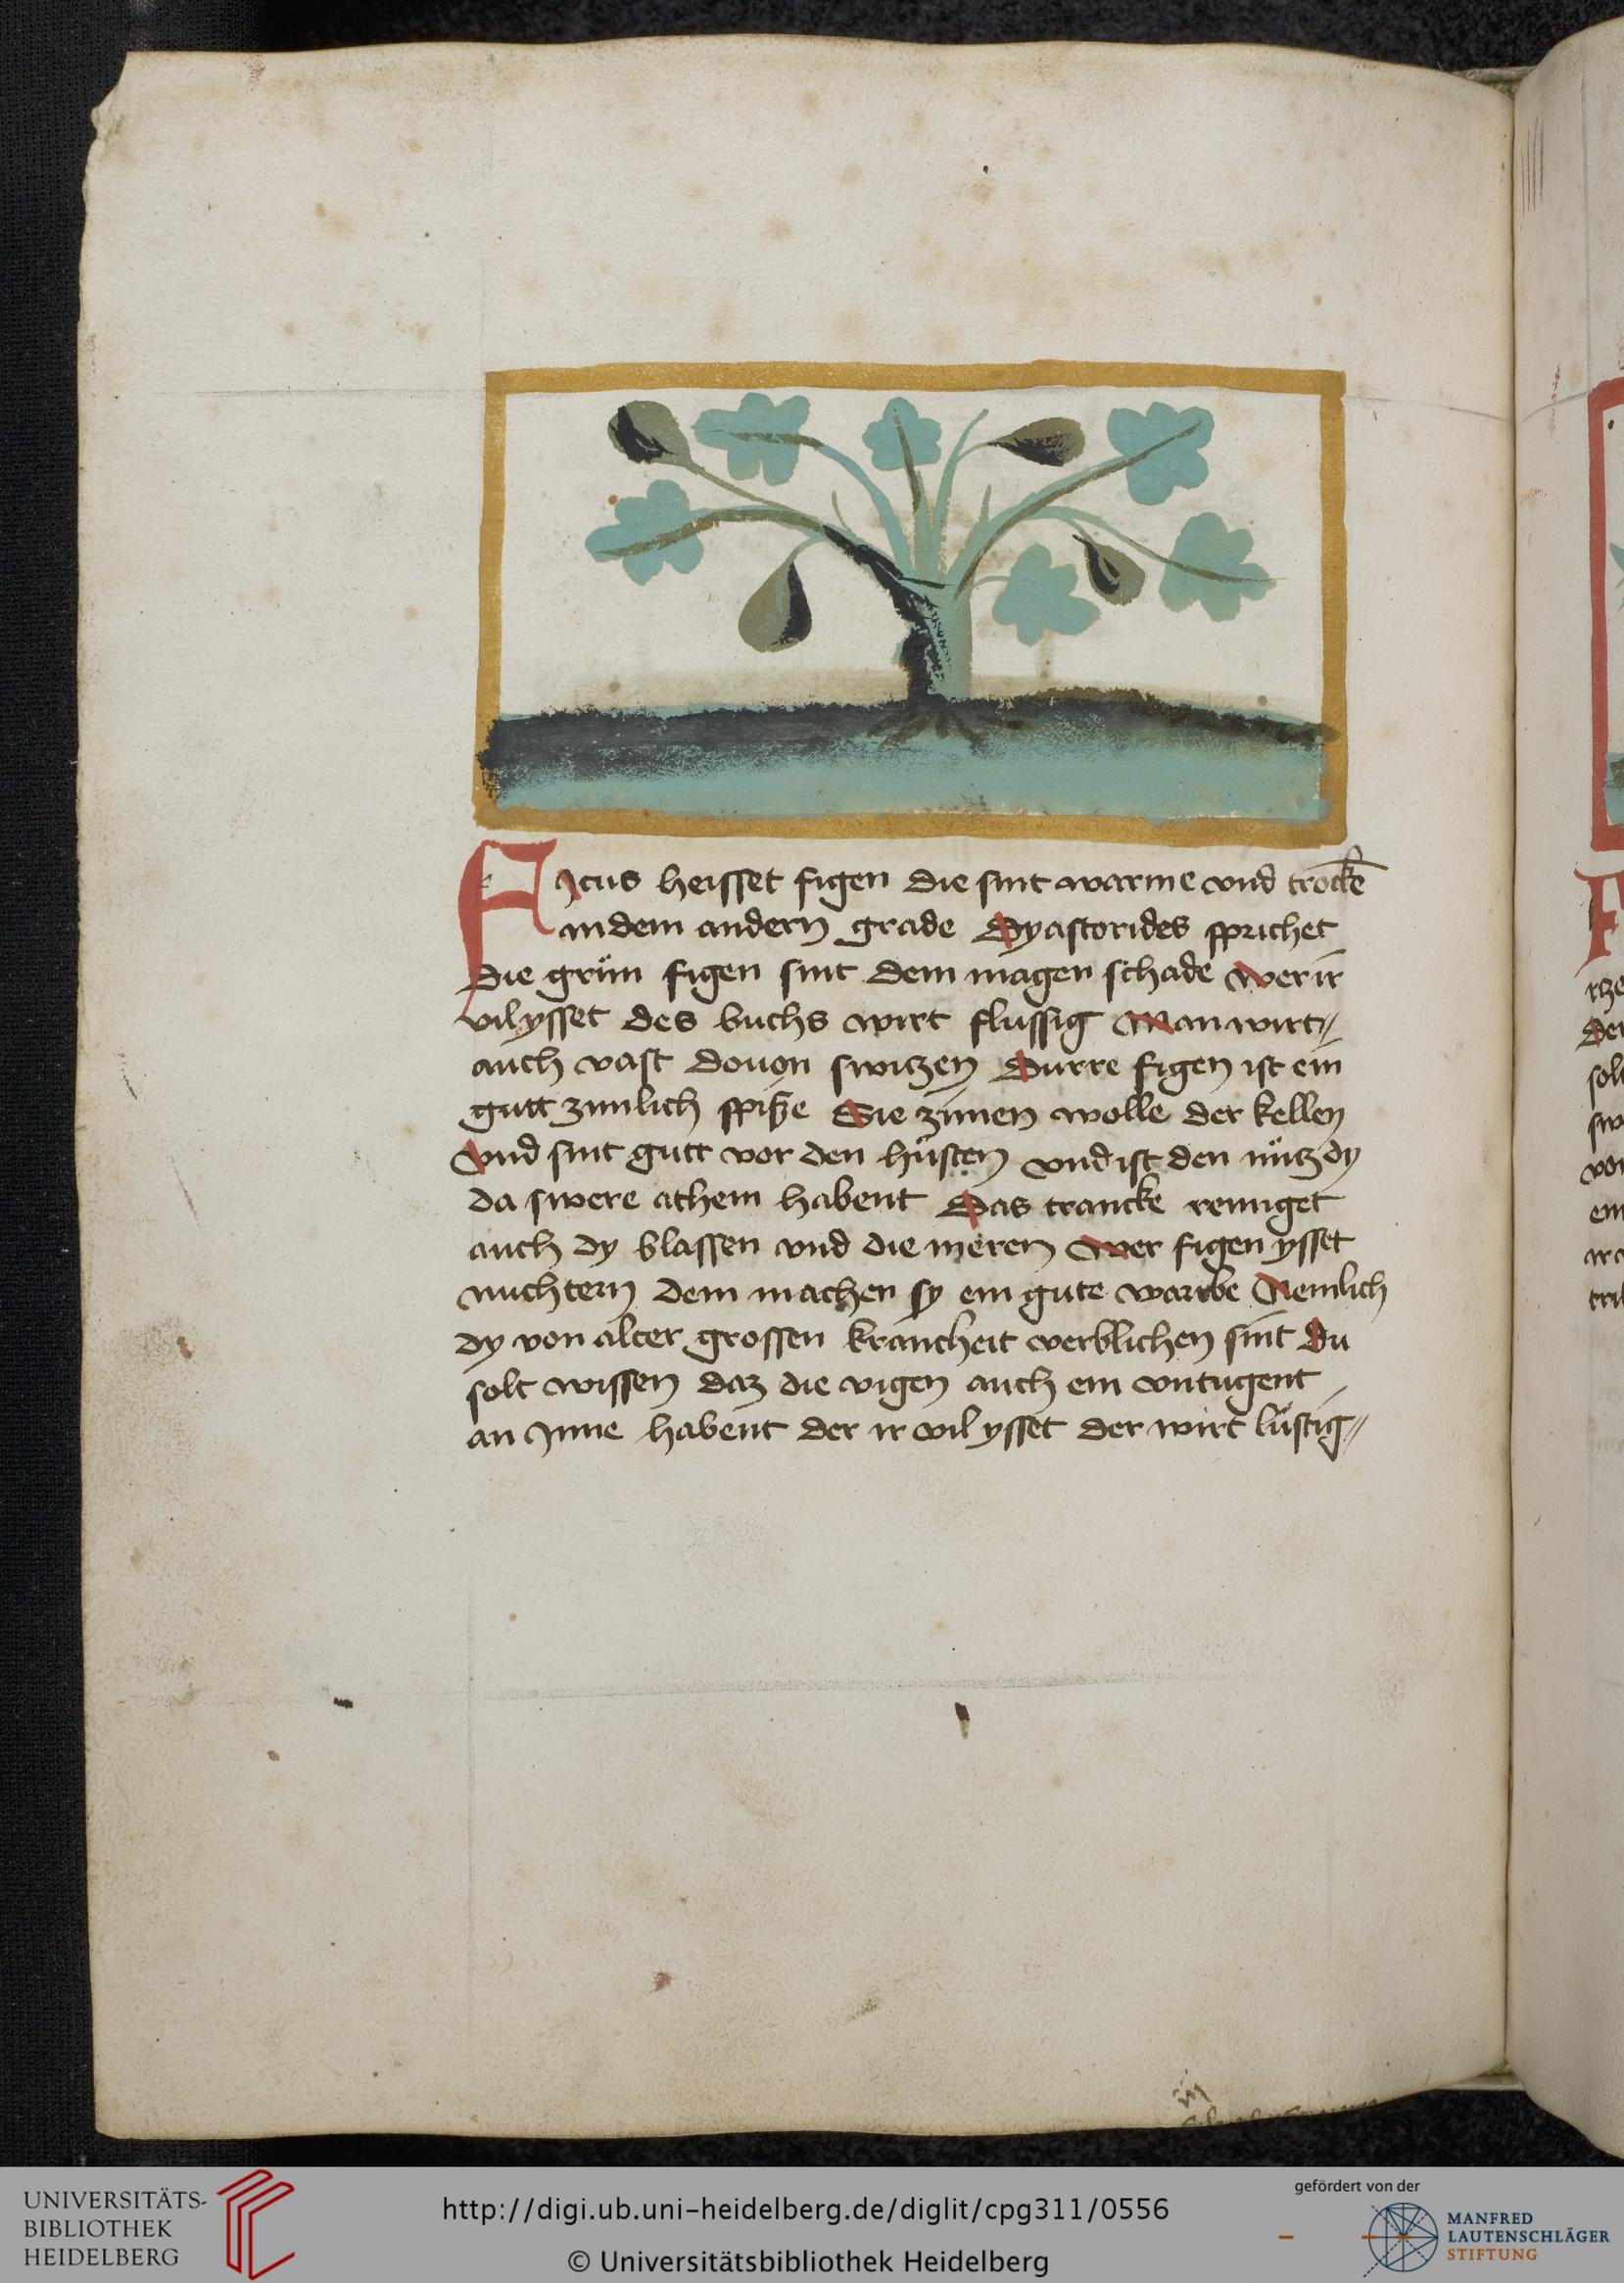 Ficus heisset figen die sint warme vnd trockē
in dem andern grade Dyastorides sprichet
die grün figen sint dem magen schade wer ir
vil ysset des buchs wirt flussig Man wirt
auch vast douon switzen Durre figen ist ein
gutt zimlich spise Sie zimen wolle der kellen
Vnd sint gutt vor den hüsten vnd ist den nütz dy
da swere athem habent Das trancke reiniget
auch dy blassen vnd die nieren Wer figen ysset
nuchtern dem machen sy ein gute varwbe Nemlich
dy von alter grossen kranckheit verblichen sint Du
solt wissen daz die vigen auch ein vntugent
an Jnne habent der ir vil ysset der wirt lüstig
UNIVERSITÄTS-
BIBLIOTHEK
HEIDELBERG
http://digi.ub.uni-heidelberg.de/diglit/cpg311/0556
© Universitätsbibliothek Heidelberg
gefördert von der
MANFRED
LAUTENSCHLÄGER
STIFTUNG